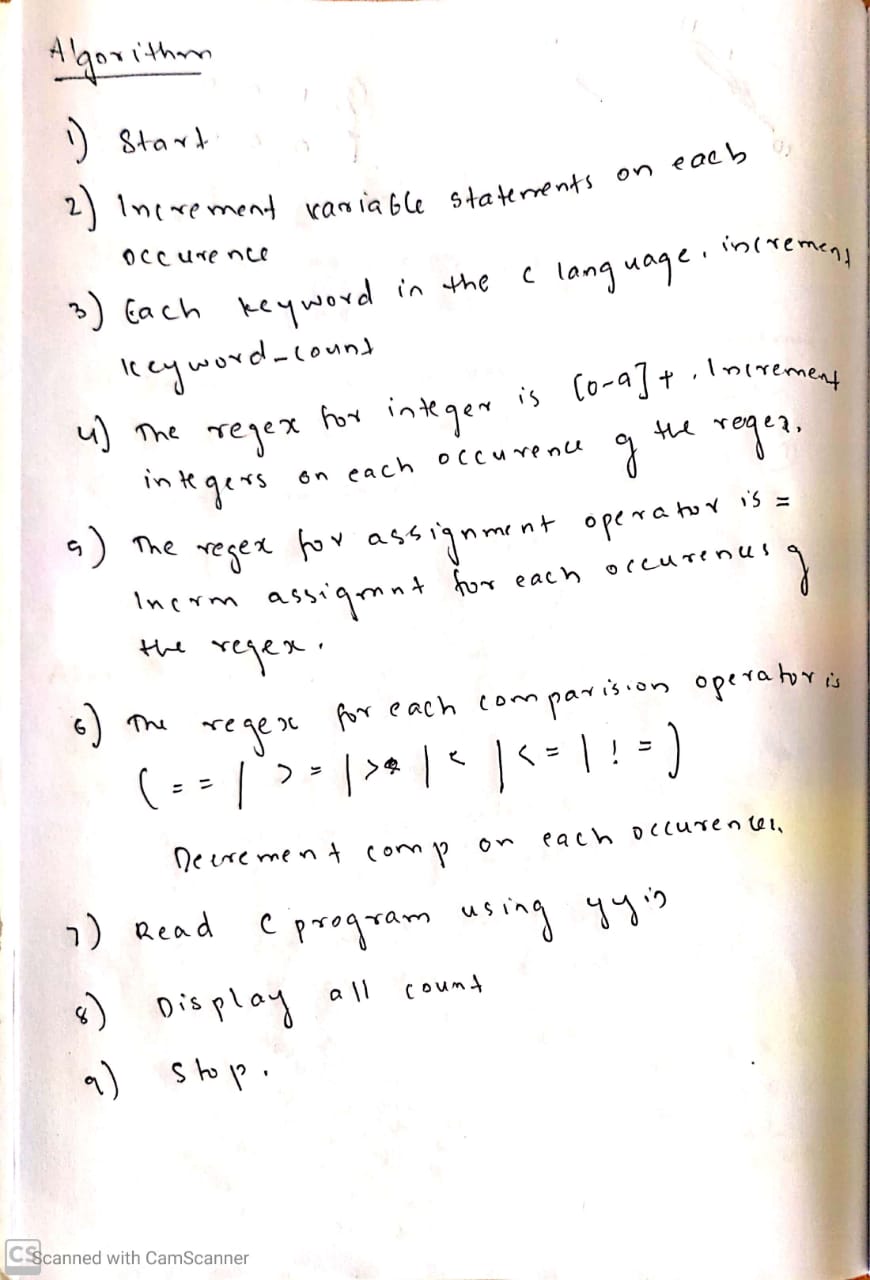 Algorithm
1) Start
2) Increment variable statements on each
occurence
3) Each keyword in the c language, increment
keyword_count
4) The regex for integer is [0-9]+, Increment
integers on each occurence of the regex,
5) The regex for assignment operator is =
Incrm assignmnt for each occurences of
the regex.
6) The regex for each comparision operator is
(== | >= | > | < | <= | !=)
Decrement comp on each occurences,
7) Read c program using yyin
8) Display all count
9) Stop.
CS Scanned with CamScanner